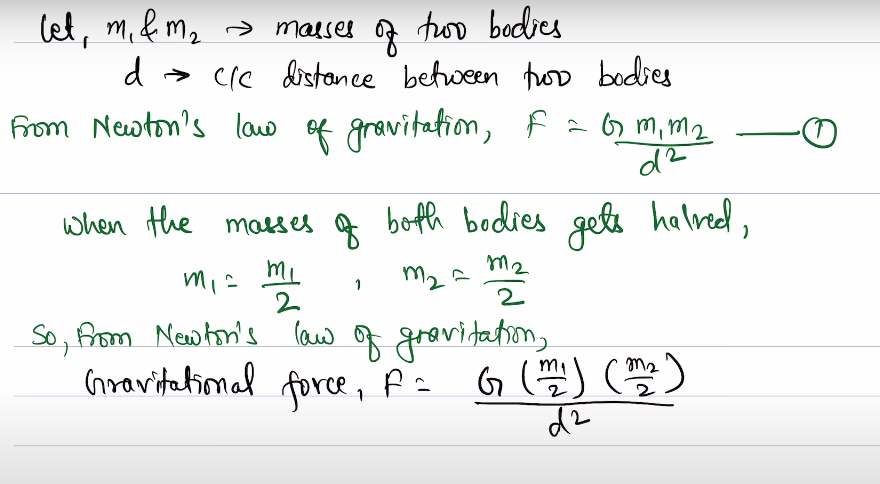 let, m₁ & m₂ → masses of two bodies
d → c/c distance between two bodies
From Newton's law of gravitation, F = G m₁m₂/d² —— ①
When the masses of both bodies gets halved,
m₁ = m₁/2 , m₂ = m₂/2
So, from Newton's law of gravitation,
Gravitational force, F = G (m₁/2) (m₂/2)/d²